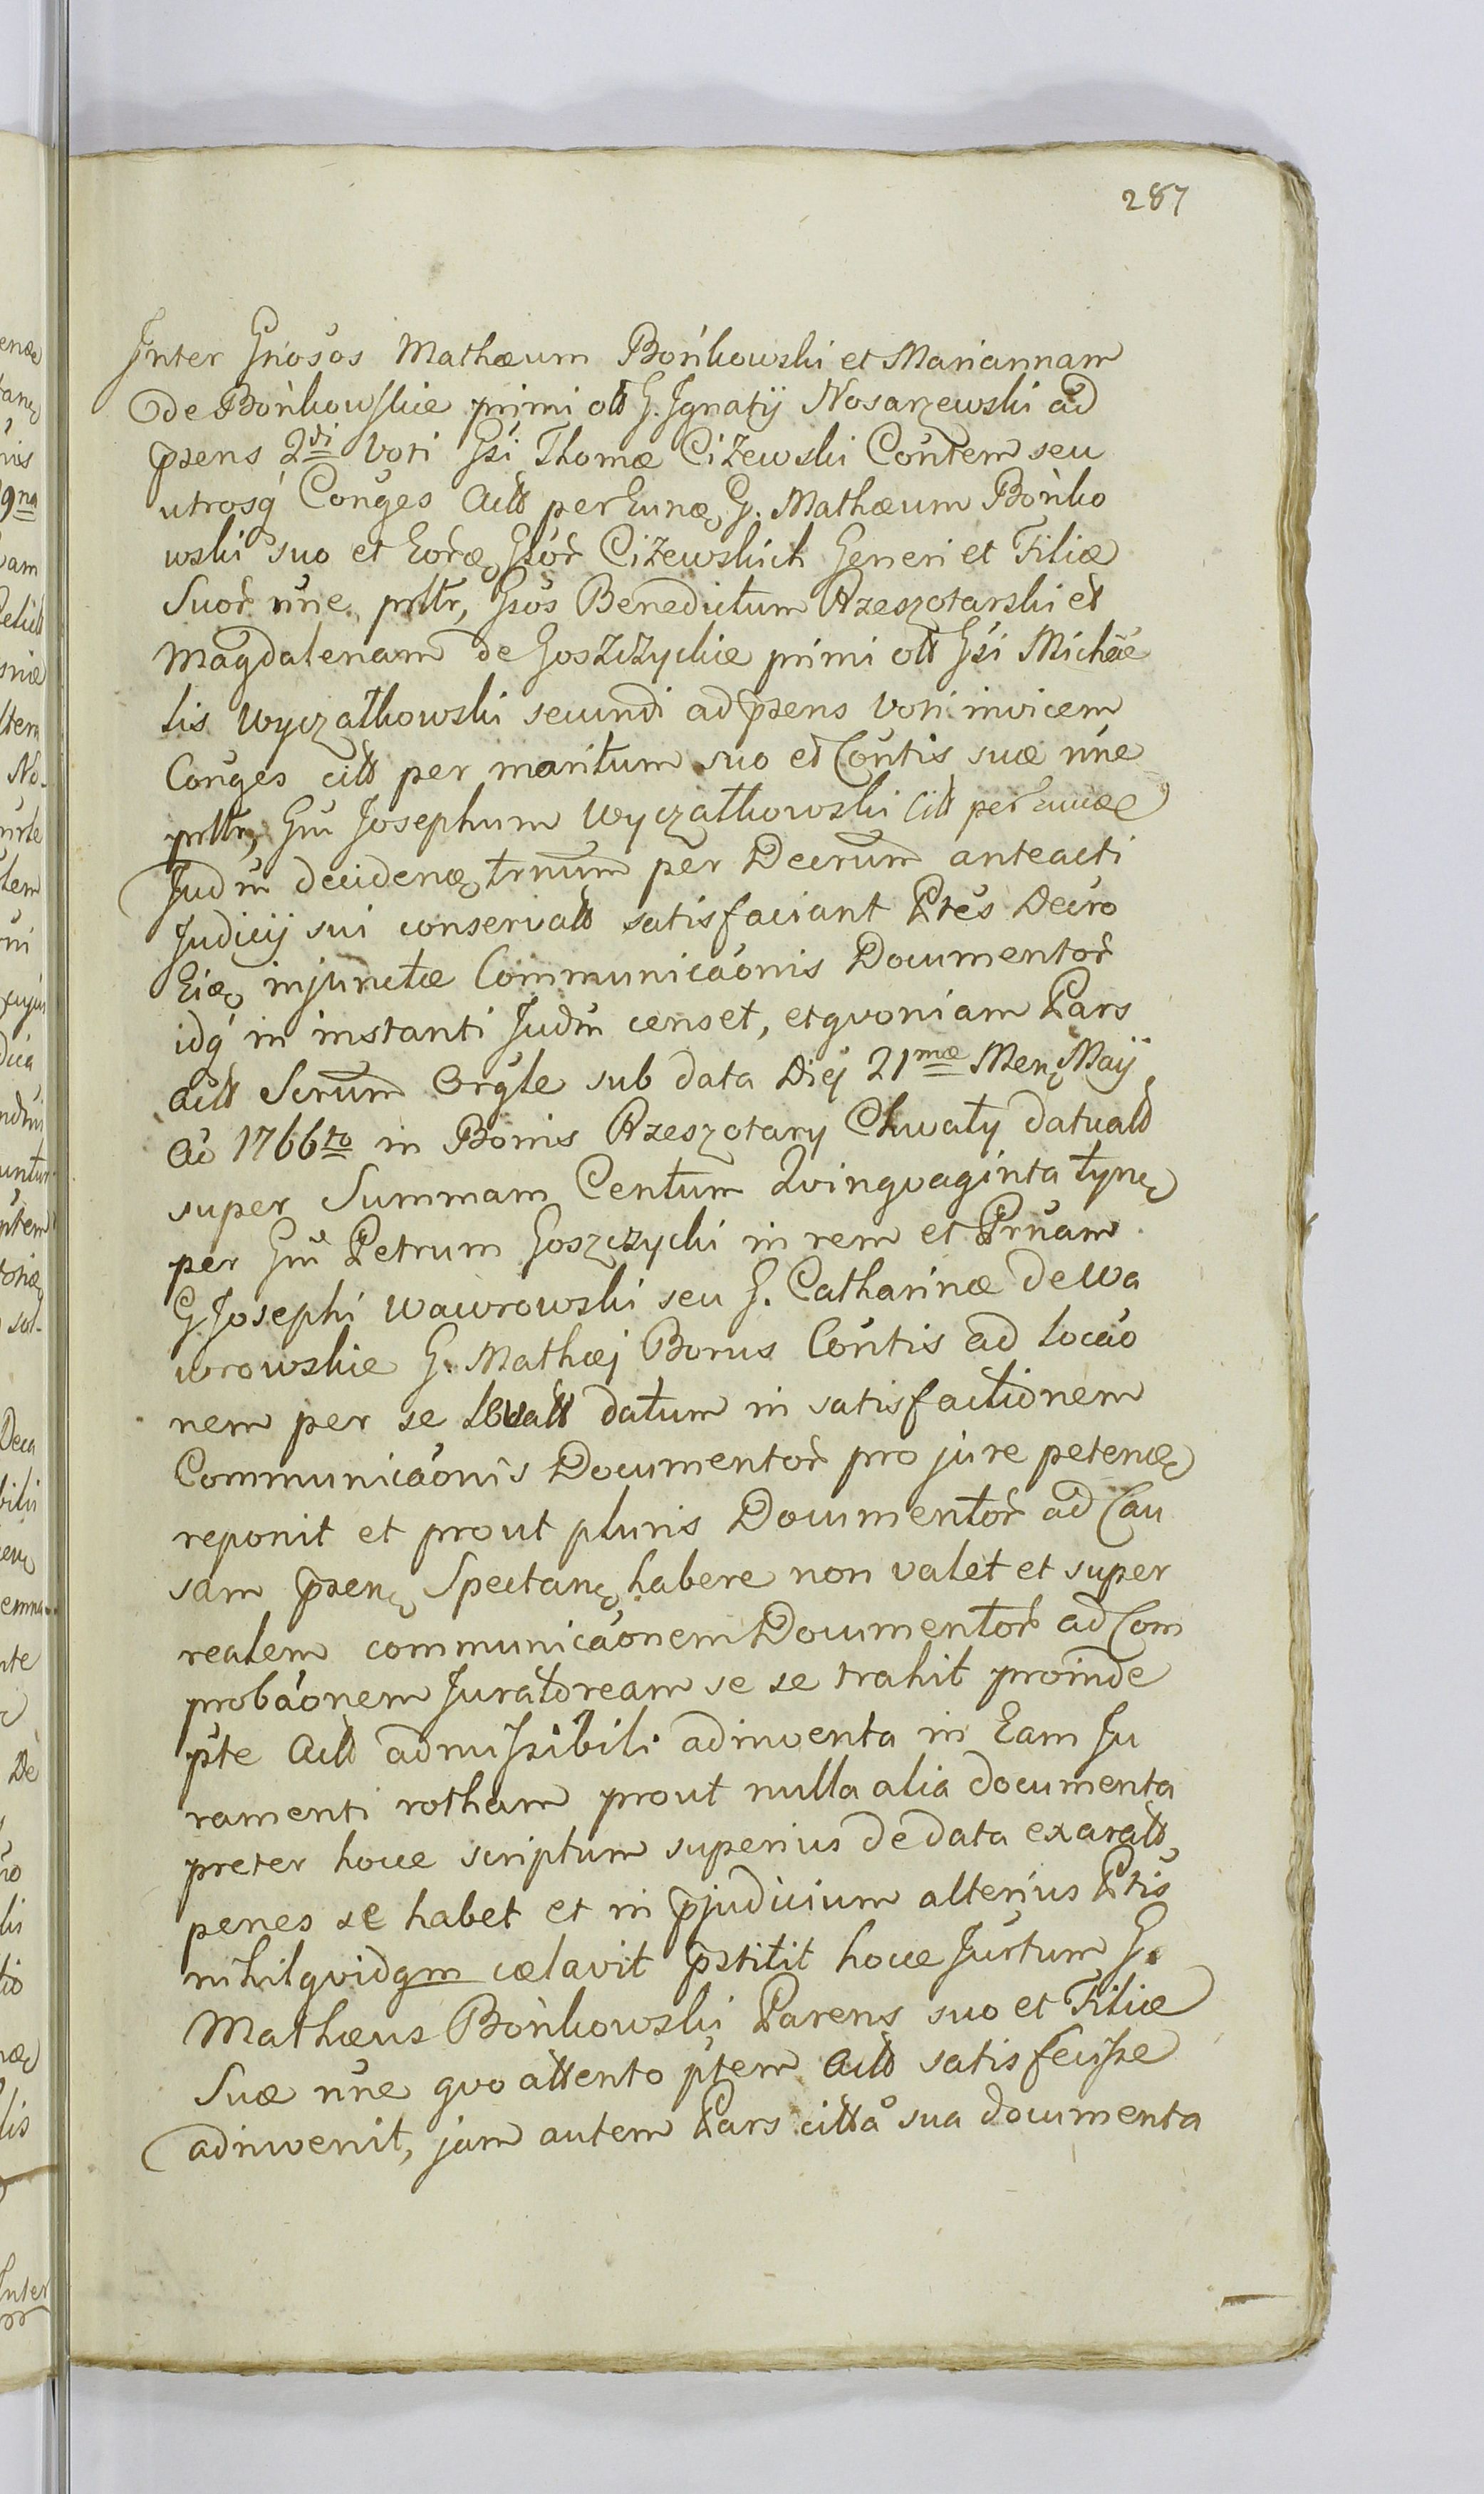 287
Jnter Gńosos Mathæum Bońkowski et Mariannam
de Bońkowskie primi olt G. Jgnatij Nosarzewski ad
pzens 2di Voti Gsi Thomæ Ciżewski Contem seu
utrosq́ Conges Actt per Eunæ G. Mathæum Bońko
wski suo et Eoræ Gsór Ciżewskich Generi et Filiæ
Suor ńńe prttr, Gsos Benedictum Rzeszotarski et
Magdalenam de Goszczyckie primi olt Gsi Michäe
lis Wyczałkowski secundi ad pzens Voti invicem
Conges citt per maritum suo et Contis suæ ńńe
prttr, Gm Josephum Wyczałkowski Citt per
Judm decidenæ trnum per Decrum anteacti
Judicij sui conservatt satisfaciant Ptes Decro
Eiæ injunctæ Communicaonis Documentor
idq́ in instanti Judm censet, etqvoniam Pars
Actt Scrum Orgle sub data Diej 21mæ Men Maij
Ao 1766to in Bonis Rzeszotary Chwały datuatt
super Summam Centum Qvinqvaginta tyne
per Gm Petrum Goszczycki in rem et Prnam
G Josephi Wawrowski seu G. Catharinæ de Wa
wrowskie G. Mathæj Borus Contis ad locao
nem per se levatt datum in satisfactionem
Communicaonis Documentor pro jure petenæ
reponit et prout pluris Documentor ad Cau
sam pzene Spectane habere non valet et super
realem communicaonem Documentor ad Com
probaonem Juratoream se se trahit proinde
pte Actt admissibili adinventa in Eam Ju
ramenti rotham prout nulla alia documenta
preter hocce scriptum superius de data exaratt
penes se habet et in pjudicium alterius Ptis
nihilqvidqm cælavit pstitit hocce Jurtum G.
Mathæus Bońkowski Parens suo et Filiæ
Suæ ńńe qvo attento ptem Actt satisfecisse
adinvenit, jam autem Pars citta sua documenta